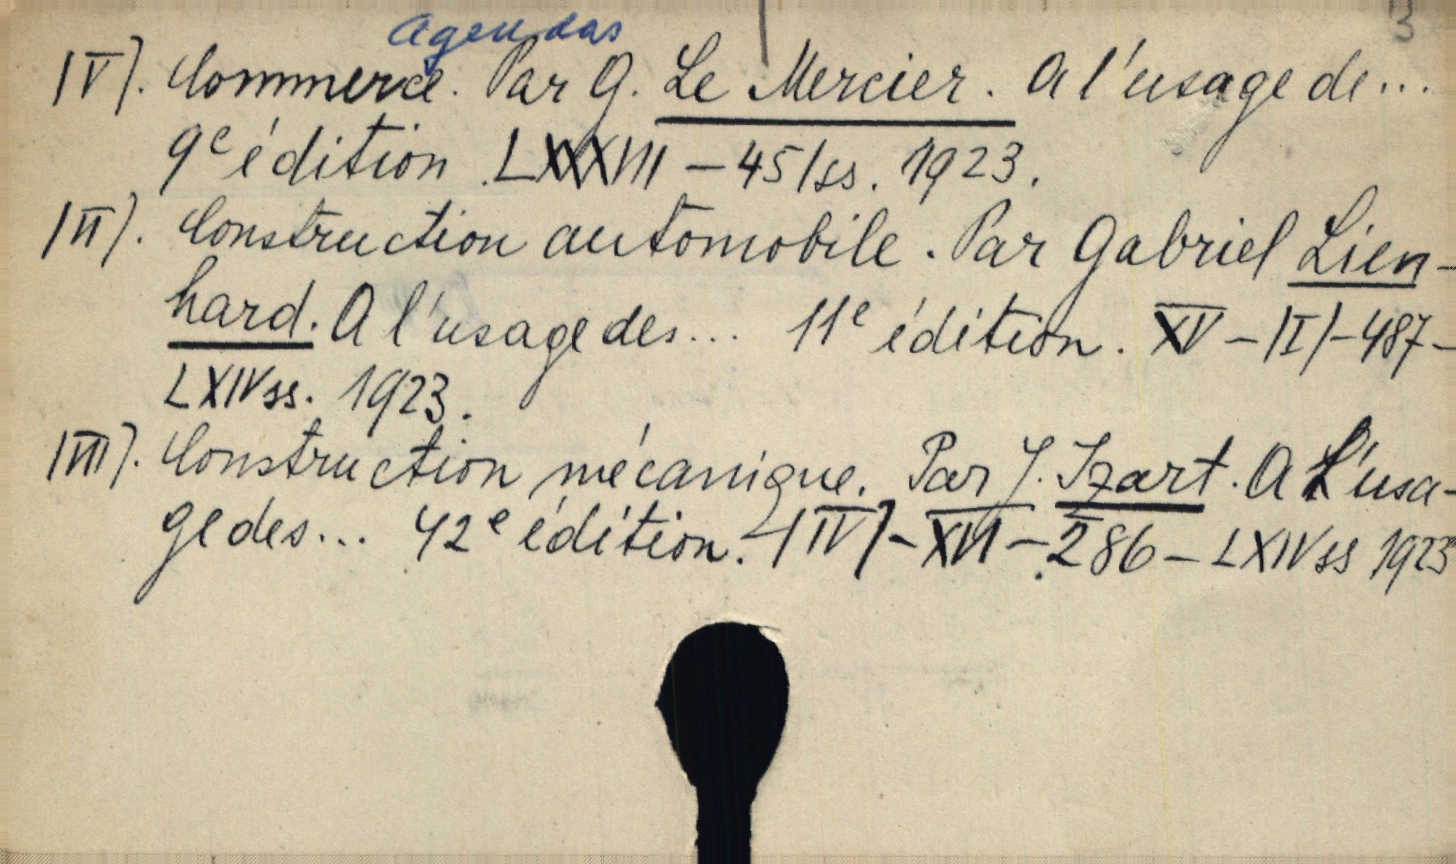 3
Agendas
/V/. Commerce. Par G. Le Mercier. A l'usage de...
9e édition. LXXXVIII – 451ss. 1923.
/VI/. Construction automobile. Par Gabriel Lien-
hard. A l'usage des... 11e édition. XV – /I/ – 487 –
LXIVss. 1923.
/VII/. Construction mécanique. Par J. Izart. A L'usa-
ge des... 42e édition. /IV/ – XVI – 286 – LXIVss 1923